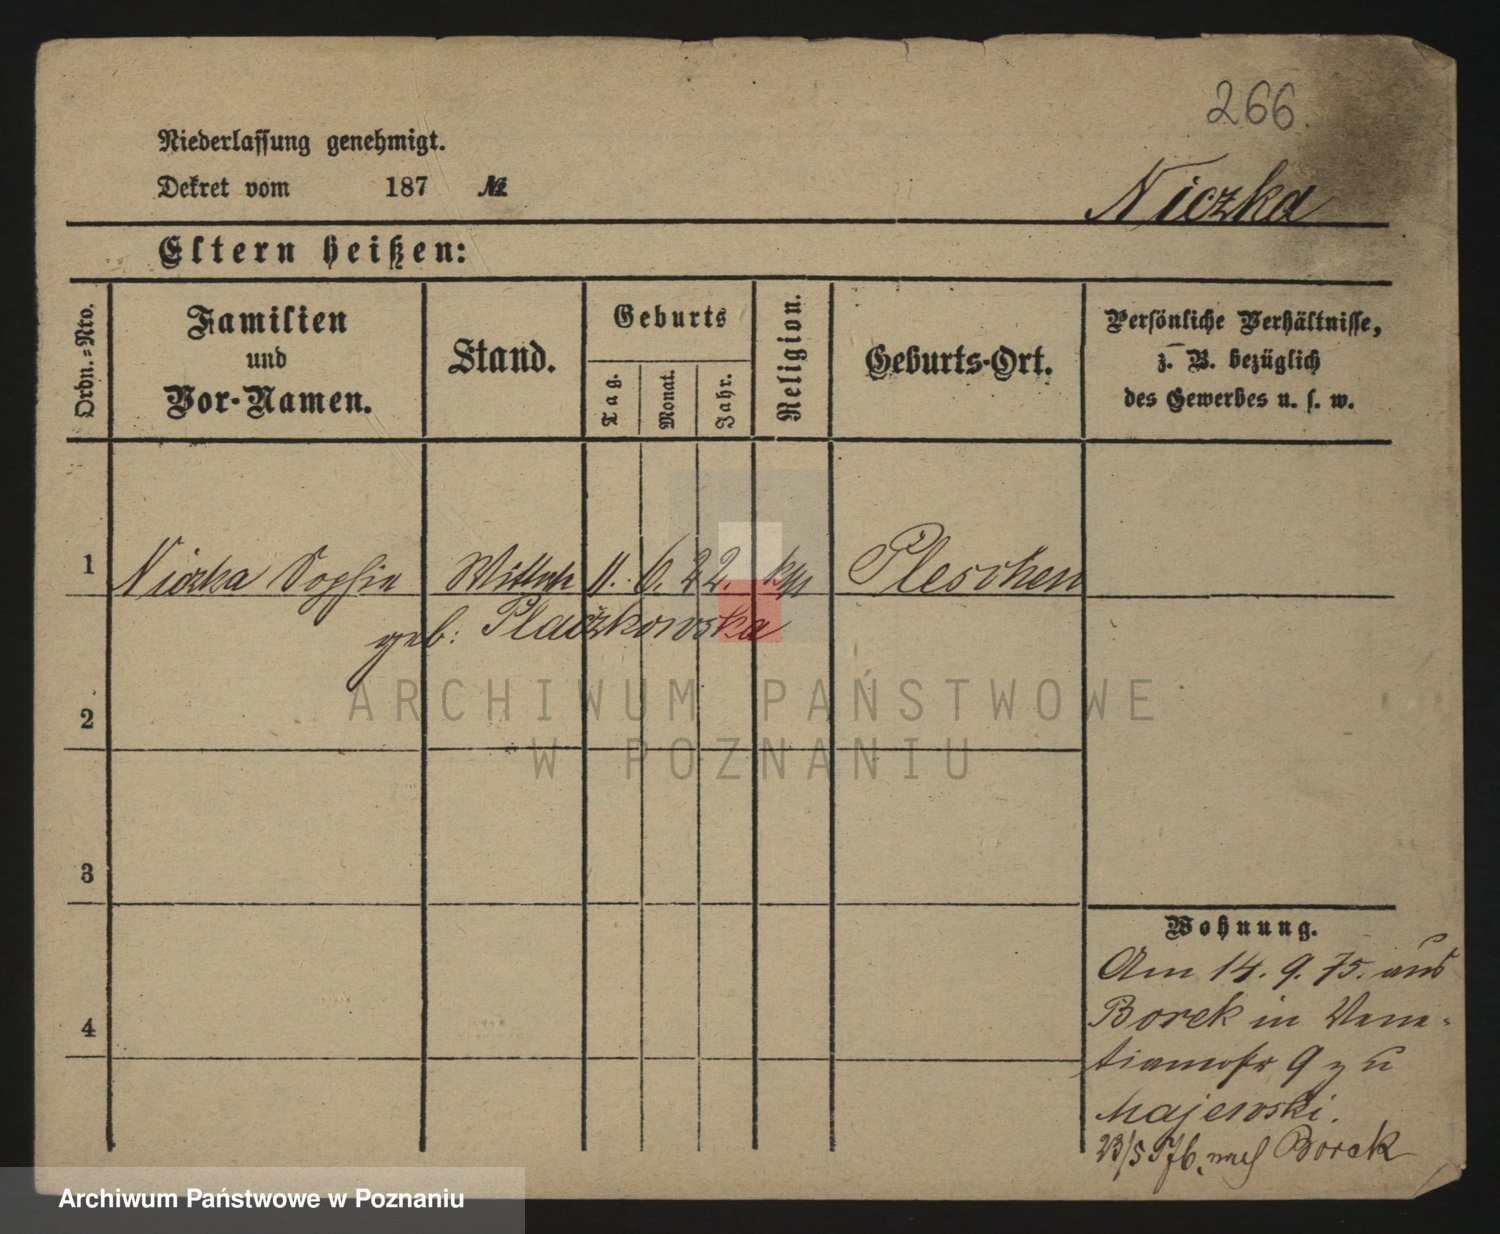 266.
Niederlassung genehmigt.
Dekret vom 187 №
Niczka
Eltern heißen:
Ordn.=Nro.
Familien
und
Vor-Namen.
Stand.
Geburts
Tag.
Monat.
Jahr.
Religion.
Geburts-Ort.
Persönliche Verhältnisse,
z. B. bezüglich
des Gewerbes u. s. w.
1 Niczka Sophie Wittwe 11. 6. 22. kth Pleschen
geb: Placzkowska
2
3
4
Wohnung.
Am 14. 9. 75. aus
Borek in Vene-
tianerstr 9 zu
Majewski.
23/5 76. nach Borek
ARCHIWUM PAŃSTWOWE
W POZNANIU
Archiwum Państwowe w Poznaniu